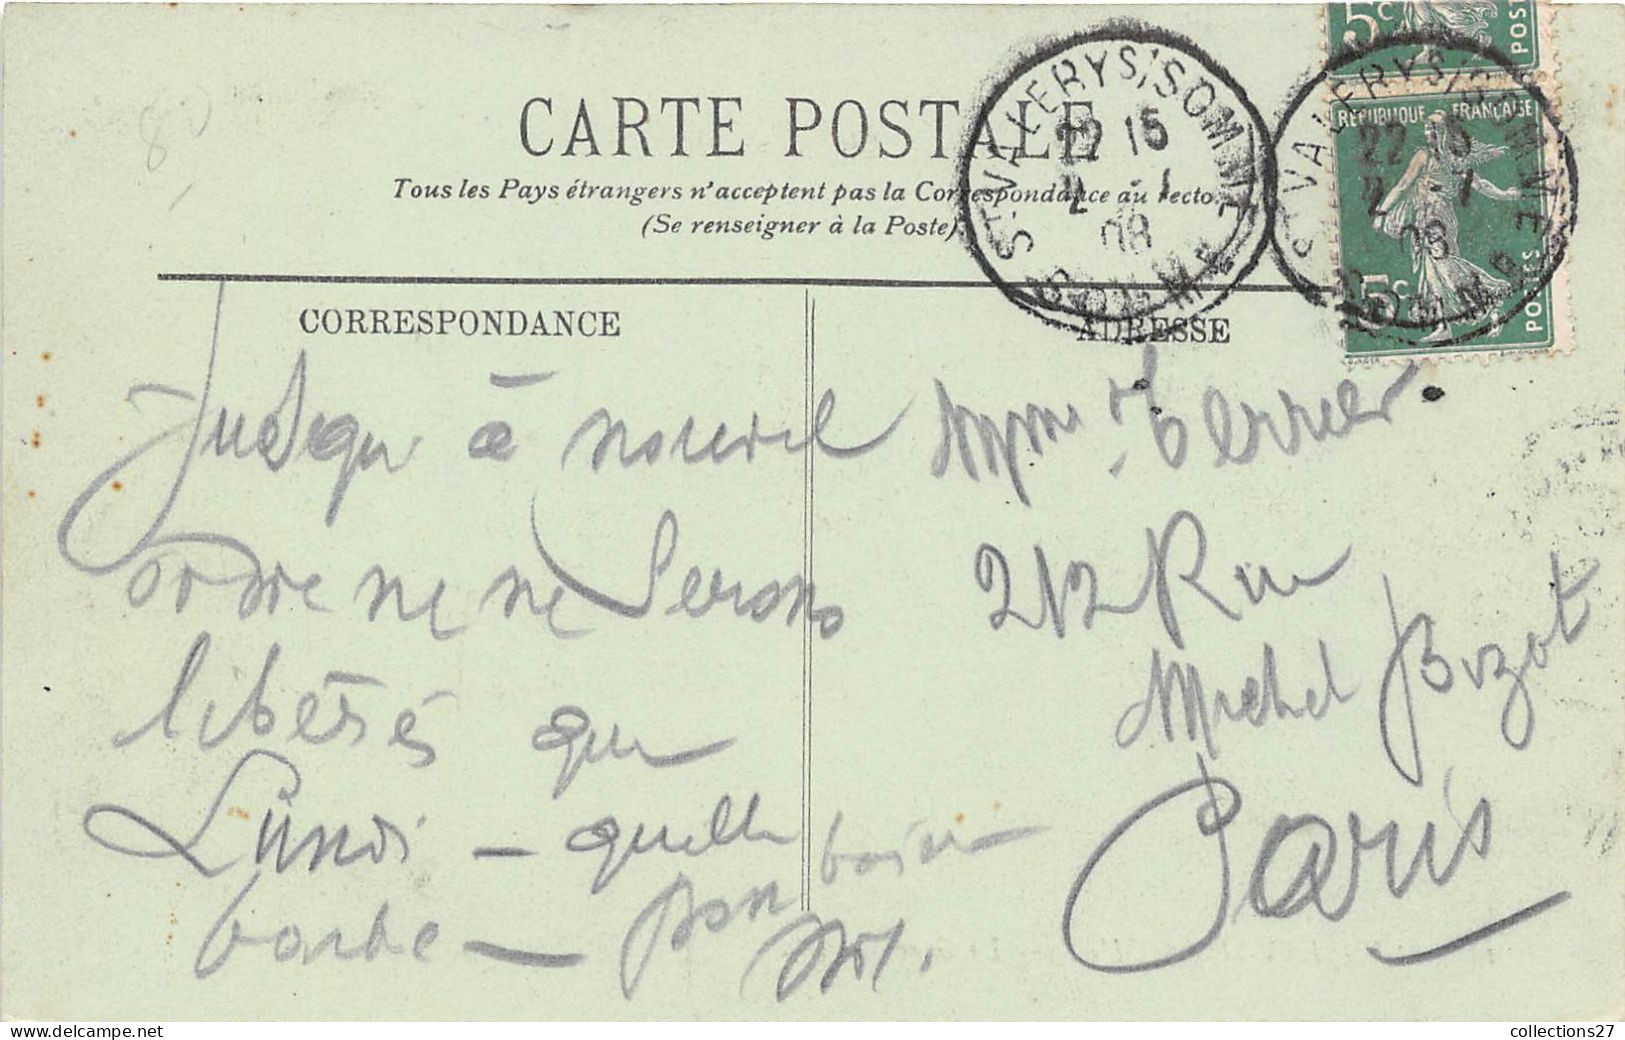 CARTE POSTALE
Tous les Pays étrangers n'acceptent pas la Correspondance au recto.
(Se renseigner à la Poste)
ST VALERY S/SOMME
22 15
2 -1
08
SOMME
ST VALERY S/SOMME
22 15
2 -1
08
SOMME
5c POSTES
REPUBLIQUE FRANÇAISE
5c POSTES
CORRESPONDANCE
Jusqu à nouvel
ordre ne ne serons
libérés que
Lundi - quelle
barbe - bon baiser
ADRESSE
Mme Terrier
212 Rue
Michel Bizot
Paris
collections27
www.delcampe.net